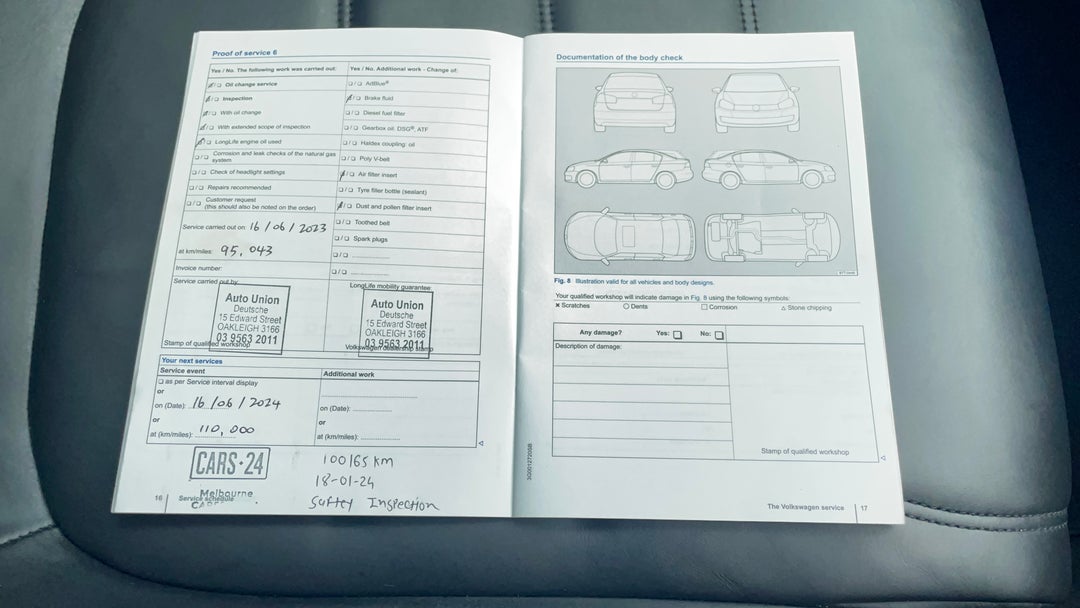 Proof of service 6
Yes / No. The following work was carried out:
Oil change service
Inspection
With oil change
With extended scope of inspection
LongLife engine oil used
Corrosion and leak checks of the natural gas
system
Check of headlight settings
Repairs recommended
Customer request
(this should also be noted on the order)
Service carried out on: 16/06/2023
at km/miles: 95,043
Invoice number:
Service carried out by:
Auto Union
Deutsche
15 Edward Street
OAKLEIGH 3166
03 9563 2011
Stamp of qualified workshop
Yes / No. Additional work - Change of:
AdBlue®
Brake fluid
Diesel fuel filter
Gearbox oil, DSG®, ATF
Haldex coupling oil
Poly V-belt
Air filter insert
Tyre filler bottle (sealant)
Dust and pollen filter insert
Toothed belt
Spark plugs
LongLife mobility guarantee:
Auto Union
Deutsche
15 Edward Street
OAKLEIGH 3166
03 9563 2011
Volkswagen dealership stamp
Your next services
Service event
as per Service interval display
or
on (Date): 16/06/2024
or
at (km/miles): 110,000
Additional work
on (Date):
or
at (km/miles):
CARS·24
Melbourne
100165 km
18-01-24
Saftey Inspection
16 Service schedule
Documentation of the body check
Fig. 8 Illustration valid for all vehicles and body designs.
Your qualified workshop will indicate damage in Fig. 8 using the following symbols:
× Scratches ○ Dents □ Corrosion △ Stone chipping
Any damage? Yes: No:
Description of damage:
Stamp of qualified workshop
The Volkswagen service 17